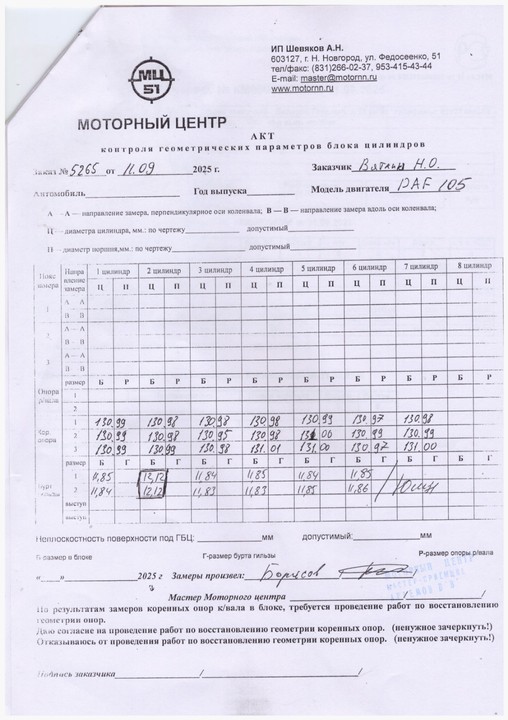 ИП Шевяков А.Н.
603127, г. Н. Новгород, ул. Федосеенко, 51
тел/факс: (831)266-02-37, 953-415-43-44
E-mail: master@motornn.ru
www.motornn.ru
МЦ
51
МОТОРНЫЙ ЦЕНТР
АКТ
контроля геометрических параметров блока цилиндров
Заказ № 5265 от 11.09 2025 г. Заказчик Вяткин Н.О.
Автомобиль Год выпуска Модель двигателя DAF 105
А — А — направление замера, перпендикулярное оси коленвала; В — В — направление замера вдоль оси коленвала;
Ц — диаметра цилиндра, мм.: по чертежу допустимый
П — диаметр поршня,мм.: по чертежу допустимый
Пояс замера Направление замера 1 цилиндр 2 цилиндр 3 цилиндр 4 цилиндр 5 цилиндр 6 цилиндр 7 цилиндр 8 цилиндр
Ц П Ц П Ц П Ц П Ц П Ц П Ц П Ц П
1 А — А
В — В
2 А — А
В — В
3 А — А
В — В
размер Б Р Б Р Б Р Б Р Б Р Б Р Б Р Б Р
Опора р/вала 1
2
Кор. опора 1 130,99 130,98 130,98 130,98 130,99 130,97 130,98
2 130,99 130,98 130,95 130,98 131,00 130,99 130,99
3 130,99 130,99 130,98 131,01 131,00 130,97 131,00
размер Б Г Б Г Б Г Б Г Б Г Б Г Б Г Б Г
Бурт гильзы 1 11,85 12,12 11,84 11,85 11,84 11,85
2 11,84 12,12 11,83 11,83 11,85 11,86
выступ
выступ
Неплоскостность поверхности под ГБЦ: мм допустимый: мм
Б-размер в блоке Г-размер бурта гильзы Р-размер опоры р/вала
«___» 2025 г Замеры произвел: Борисов
Мастер Моторного центра
По результатам замеров коренных опор к/вала в блоке, требуется проведение работ по восстановлению
геометрии опор.
Даю согласие на проведение работ по восстановлению геометрии коренных опор. (ненужное зачеркнуть!)
Отказываюсь от проведения работ по восстановлению геометрии коренных опор. (ненужное зачеркнуть!)
Подпись заказчика / /